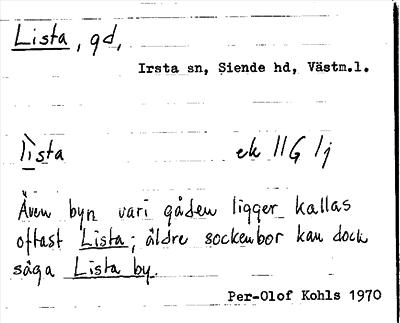 Lista, gd,
Irsta sn, Siende hd, Västm.l.
lista ek 11G 1j
Även byn vari gården ligger kallas
oftast Lista; äldre sockenbor kan dock
säga Lista by.
Per-Olof Kohls 1970